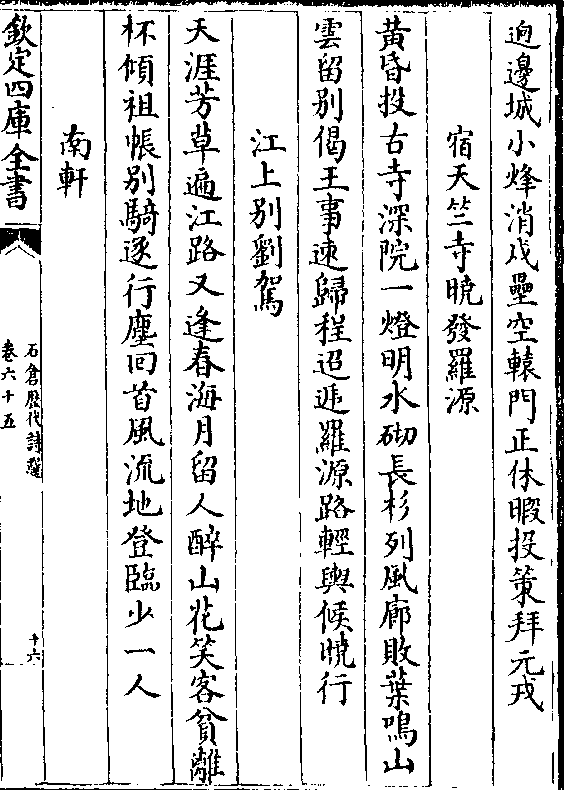 逈邊城小烽消戍壘空轅門正休暇投策拜元戎
宿天竺寺曉發羅源
黃昏投古寺深院一燈明水砌長杉列風廊敗葉鳴山
雲留別偈王事速歸程迢遞羅源路輕輿候曉行
江上別劉駕
天涯芳草遍江路又逢春海月留人醉山花笑客貧離
杯傾祖帳別騎逐行塵回首風流地登臨少一人
南軒
欽定四庫全書
石倉歷代詩選
卷六十五
十六